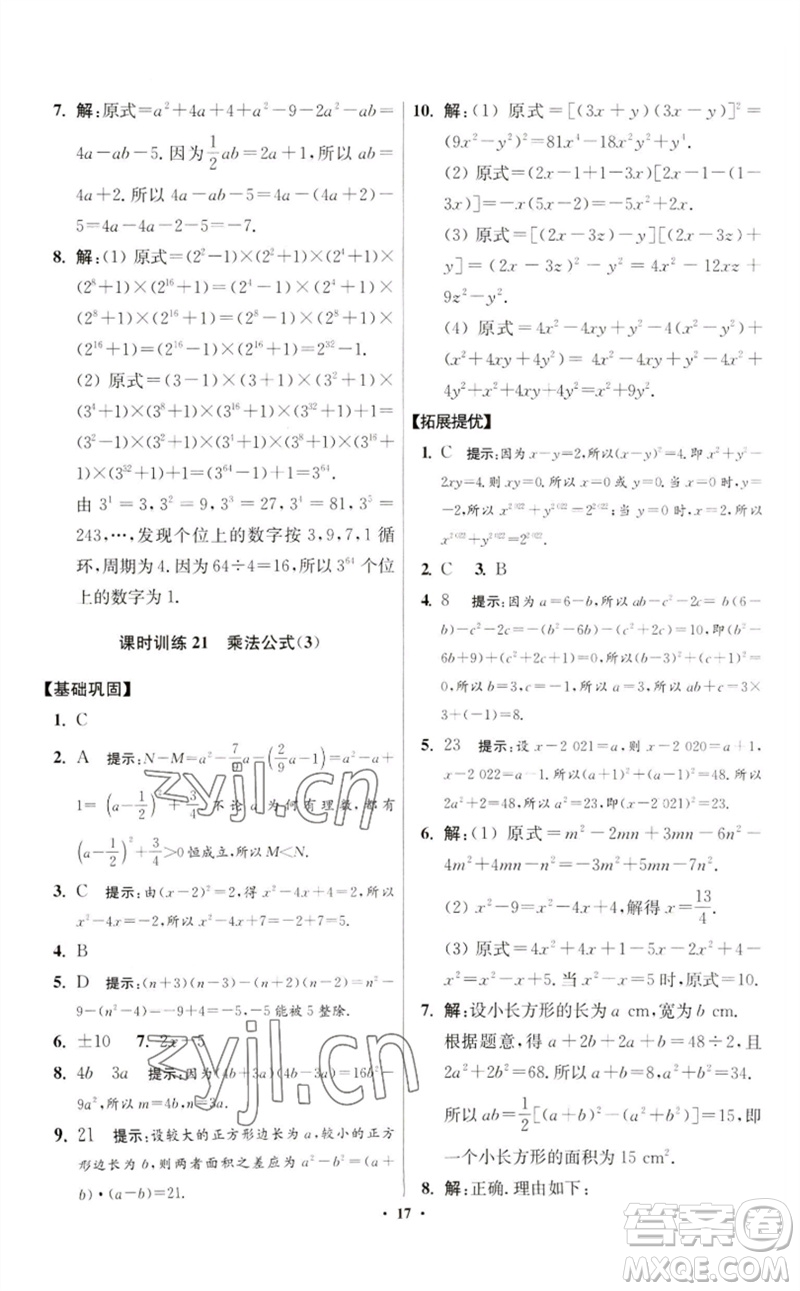 7. 解:原式=a²+4a+4+a²-9-2a²-ab=
4a-ab-5. 因为1/2ab=2a+1, 所以 ab=
4a+2. 所以 4a-ab-5=4a-(4a+2)-
5=4a-4a-2-5=-7.
8. 解:(1) 原式=(2²-1)×(2²+1)×(2⁴+1)×
(2⁸+1)×(2¹⁶+1)=(2⁴-1)×(2⁴+1)×
(2⁸+1)×(2¹⁶+1)=(2⁸-1)×(2⁸+1)×
(2¹⁶+1)=(2¹⁶-1)×(2¹⁶+1)=2³²-1.
(2) 原式=(3-1)×(3+1)×(3²+1)×
(3⁴+1)×(3⁸+1)×(3¹⁶+1)×(3³²+1)+1=
(3²-1)×(3²+1)×(3⁴+1)×(3⁸+1)×
(3¹⁶+1)×(3³²+1)+1=(3⁶⁴-1)+1=3⁶⁴.
由 3¹=3, 3²=9, 3³=27, 3⁴=81, 3⁵=
243, …, 发现个位上的数字按 3, 9, 7, 1 循
环, 周期为 4. 因为 64÷4=16, 所以 3⁶⁴ 个位
上的数字为 1.
课时训练 21 乘法公式(3)
【基础巩固】
1. C
2. A 提示:N-M=a²-7/9a-(2/9a-1)=a²-a+
1=(a-1/2)²+3/4. 不论 a 为何有理数, 都有
(a-1/2)²+3/4>0 恒成立, 所以 M<N.
3. C 提示:由(x-2)²=2, 得 x²-4x+4=2.
x²-4x=-2, 所以 x²-4x+7=5.
4. B
5. D 提示:(n+3)(n-3)-(n+2)(n-2)=n²-
9-(n²-4)=-9+4=-5, 能被 5 整除.
6. ±10 7. 2x-5
8. 4b 3a 提示:因为(4b+3a)(4b-3a)=16b²-
9a², 所以 m=4b, n=3a.
9. 21 提示:设较大的正方形边长为 a, 较小的正方
形边长为 b, 则两者面积之差应为 a²-b²=(a+
b)·(a-b)=21.
10. 解:(1) 原式=[(3x+y)(3x-y)]²=
(9x²-y²)²=81x⁴-18x²y²+y⁴.
(2) 原式=(2x-1+1-3x)[2x-1-(1-
3x)]=-x(5x-2)=-5x²+2x.
(3) 原式=[(2x-3z)-y][(2x-3z)+
y]=(2x-3z)²-y²=4x²-12xz+
9z²-y².
(4) 原式=4x²-4xy+y²-4(x²-y²)+
(x²+4xy+4y²)=4x²-4xy+y²-4x²+
4y²+x²+4xy+4y²=x²+9y².
【拓展提优】
1. C 提示:因为 x-y=2, 所以(x-y)²=4. 即 x²+y²-
2xy=4. 则 xy=0. 所以 x=0 或 y=0. 当 x=0 时, y=
-2, 所以 x²⁰²²+y²⁰²²=2²⁰²²; 当 y=0 时, x=2, 所以
x²⁰²²+y²⁰²²=2²⁰²².
2. C 3. B
4. 8 提示:因为 a=6-b, 所以 ab-c²-2c=b(6-
b)-c²-2c=10. 所以-b²+6b-c²-2c=10. -(b²-
6b+9)+9-(c²+2c+1)+1=10. 即(b-3)²+(c+1)²=
0. 所以 b=3, c=-1. 所以 a=6-b=3. 所以 ab+c²-c=3×
3+(-1)=8.
5. 23 提示:设 x-2 021=a, 则 x-2 020=a+1,
x-2 022=a-1. 所以(a+1)²+(a-1)²=48. 所以
2a²+2=48. 所以 a²=23, 即(x-2 021)²=23.
6. 解:(1) 原式=m²-2mn+3mn-6n²-
4m²+4mn+n²=-3m²+5mn-5n².
(2) x²-9=x²-4x+4, 解得 x=13/4.
(3) 原式=4x²+4x+1-5x-2x²+4x-
2x²-2x-6=x+5. 当 x=5 时, 原式=10.
7. 解:设小长方形的长为 a cm, 宽为 b cm.
根据题意, 得 a+2b+2a+b=48÷2, 且
2a²+2b²=68. 所以 a+b=8, a²+b²=34.
所以 ab=1/2[(a+b)²-(a²+b²)]=15, 即
一个小长方形的面积为 15 cm².
8. 解:正确. 理由如下:
· 17 ·
zyjl.cn
zyjl.cn
答案卷
MXQE.COM